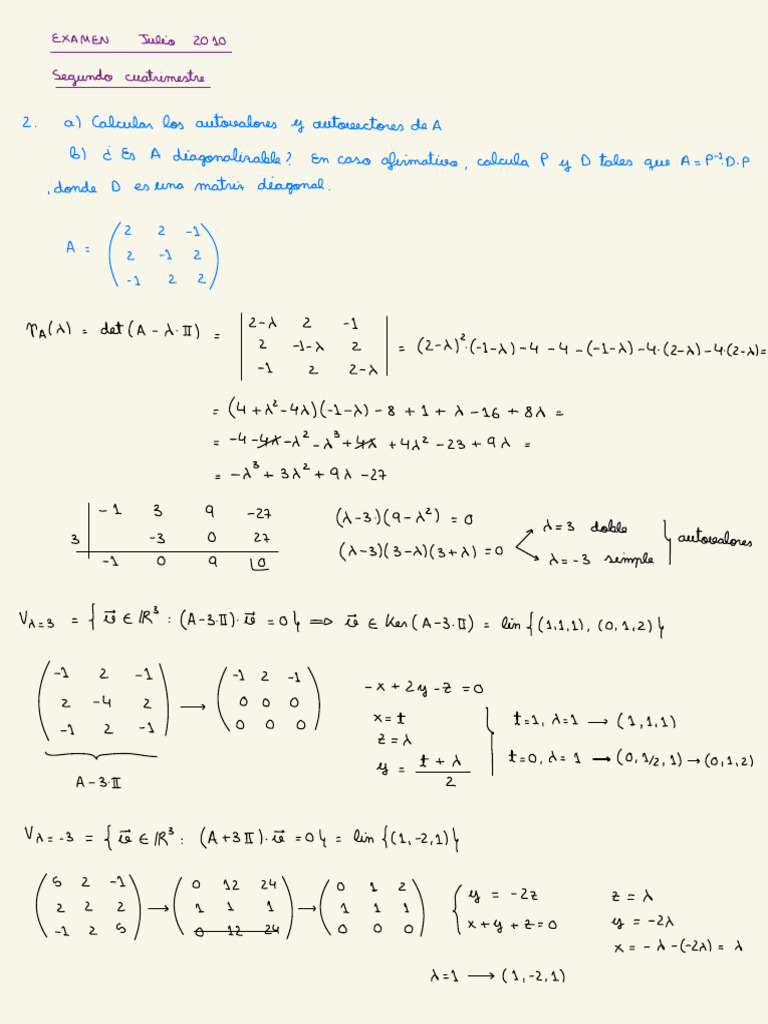 EXAMEN Julio 2010
Segundo cuatrimestre
2. a) Calcular los autovalores y autovectores de A
b) ¿Es A diagonalizable? En caso afirmativo, calcula P y D tales que A = P⁻¹·D·P
, donde D es una matriz diagonal.
A = ( 2 2 -1
2 -1 2
-1 2 2 )
r_A(λ) = det(A - λ·II) = | 2-λ 2 -1
2 -1-λ 2
-1 2 2-λ | = (2-λ)²·(-1-λ) - 4 - 4 - (-1-λ) - 4·(2-λ) - 4·(2-λ) =
= (4 + λ² - 4λ)(-1-λ) - 8 + 1 + λ - 16 + 8λ =
= -4 - 4λ - λ² - λ³ + 4λ + 4λ² - 23 + 9λ =
= -λ³ + 3λ² + 9λ - 27
-1 3 9 -27
3 -3 0 27
-1 0 9 0
(λ-3·)(9-λ²) = 0
(λ-3)(3-λ)(3+λ) = 0
λ = 3 doble
λ = -3 simple
autovalores
V_λ=3 = { v⃗ ∈ IR³ : (A-3·II)·v⃗ = 0 } ⟹ v⃗ ∈ Ker(A-3·II) = lin{(1,1,1), (0,1,2)}
( -1 2 -1
2 -4 2
-1 2 -1 ) → ( -1 2 -1
0 0 0
0 0 0 )
A-3·II
-x + 2y - z = 0
x = t
z = λ
y = (t + λ)/2
t=1, λ=1 → (1,1,1)
t=0, λ=1 → (0,1/2,1) → (0,1,2)
V_λ=-3 = { v⃗ ∈ IR³ : (A+3II)·v⃗ = 0 } = lin{(1,-2,1)}
( 5 2 -1
2 2 2
-1 2 5 ) → ( 0 12 24
1 1 1
0 12 24 ) → ( 0 1 2
1 1 1
0 0 0 )
y = -2z
x + y + z = 0
z = λ
y = -2λ
x = -λ - (-2λ) = λ
λ=1 → (1,-2,1)